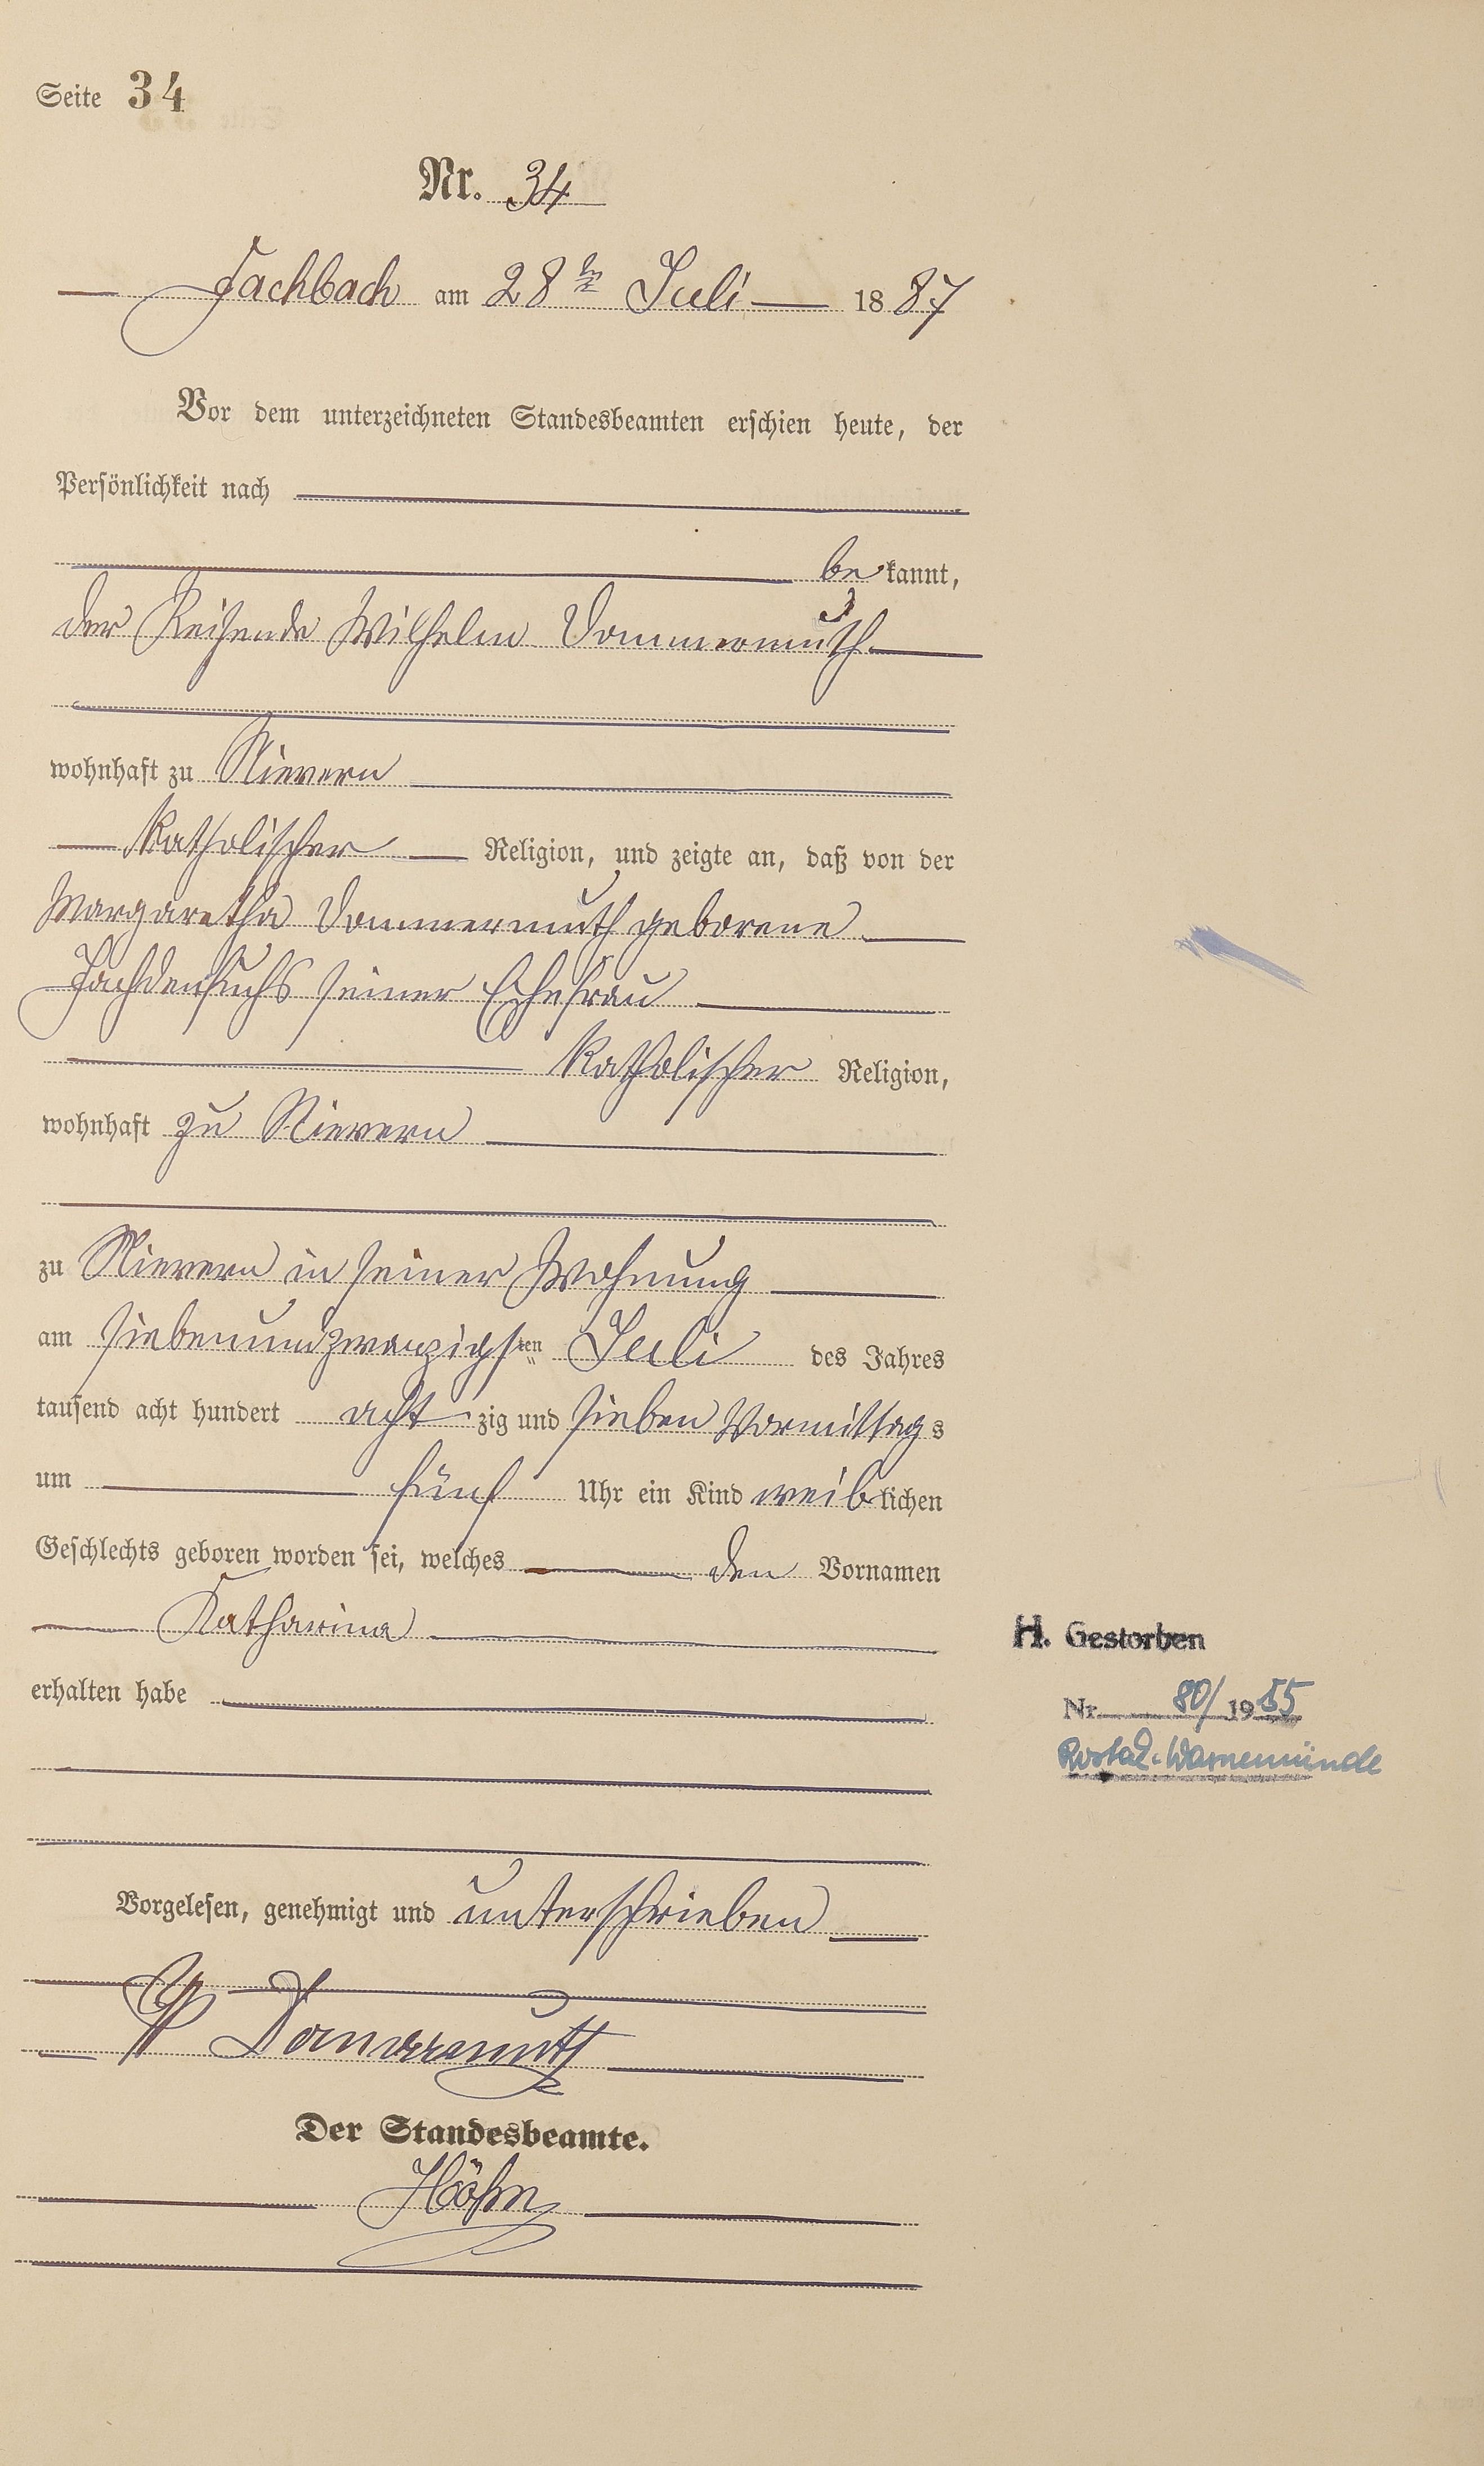 Seite 34
Nr. 34
Fachbach am 28ten Juli 1887
Vor dem unterzeichneten Standesbeamten erschien heute, der
Persönlichkeit nach
bekannt,
der Reisende Wilhelm Dommermuth
wohnhaft zu Nievern
katholischer Religion, und zeigte an, daß von der
Margaretha Dommermuth geborene
seiner Ehefrau
katholischer Religion,
wohnhaft zu Nievern
zu Nievern in seiner Wohnung
am siebenundzwanzigsten Juli des Jahres
tausend acht hundert achtzig und sieben Vormittags
um fünf Uhr ein Kind weiblichen
Geschlechts geboren worden sei, welches den Vornamen
Katharina
erhalten habe
H. Gestorben
Nr. 80/1955
Rostock-Warnemünde
Vorgelesen, genehmigt und unterschrieben
W Dommermuth
Der Standesbeamte.
Höhn